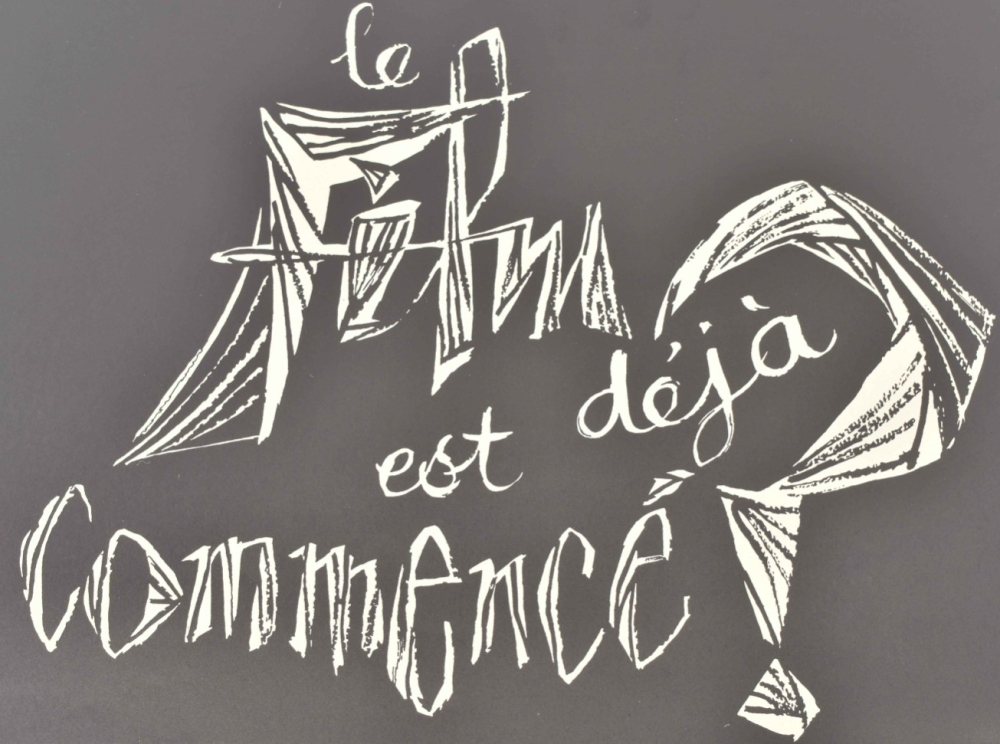 le
Film
est déjà
Commencé?